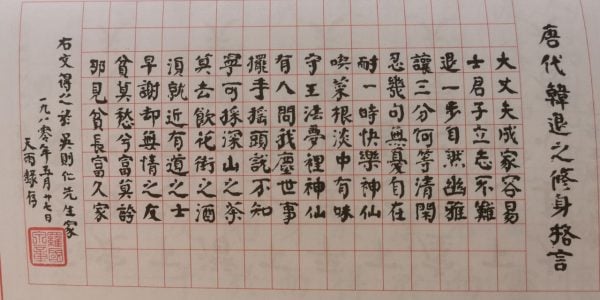 唐代韓退之修身格言
大丈夫成家容易
士君子立志不難
退一步自然幽雅
讓三分何等清閑
忍幾句無憂自在
耐一時快樂神仙
喫菜根淡中有味
守王法夢裡神仙
有人問我塵世事
擺手搖頭說不知
寧可採深山之茶
莫去飲花街之酒
須就近有道之士
早謝却無情之友
貧莫愁兮富莫誇
那見貧長富久家
右文得之於吳則仁先生家
一九八〇年五月廿七日
天雨錄存